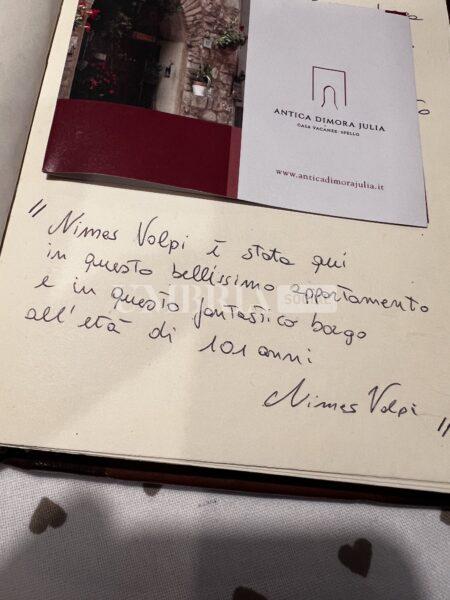 ANTICA DIMORA JULIA
CASA VACANZE SPELLO
www.anticadimorajulia.it
"Nimes Volpi è stata qui
in questo bellissimo appartamento
e in questo fantastico borgo
all'età di 101 anni
Nimes Volpi "
UMBRIA